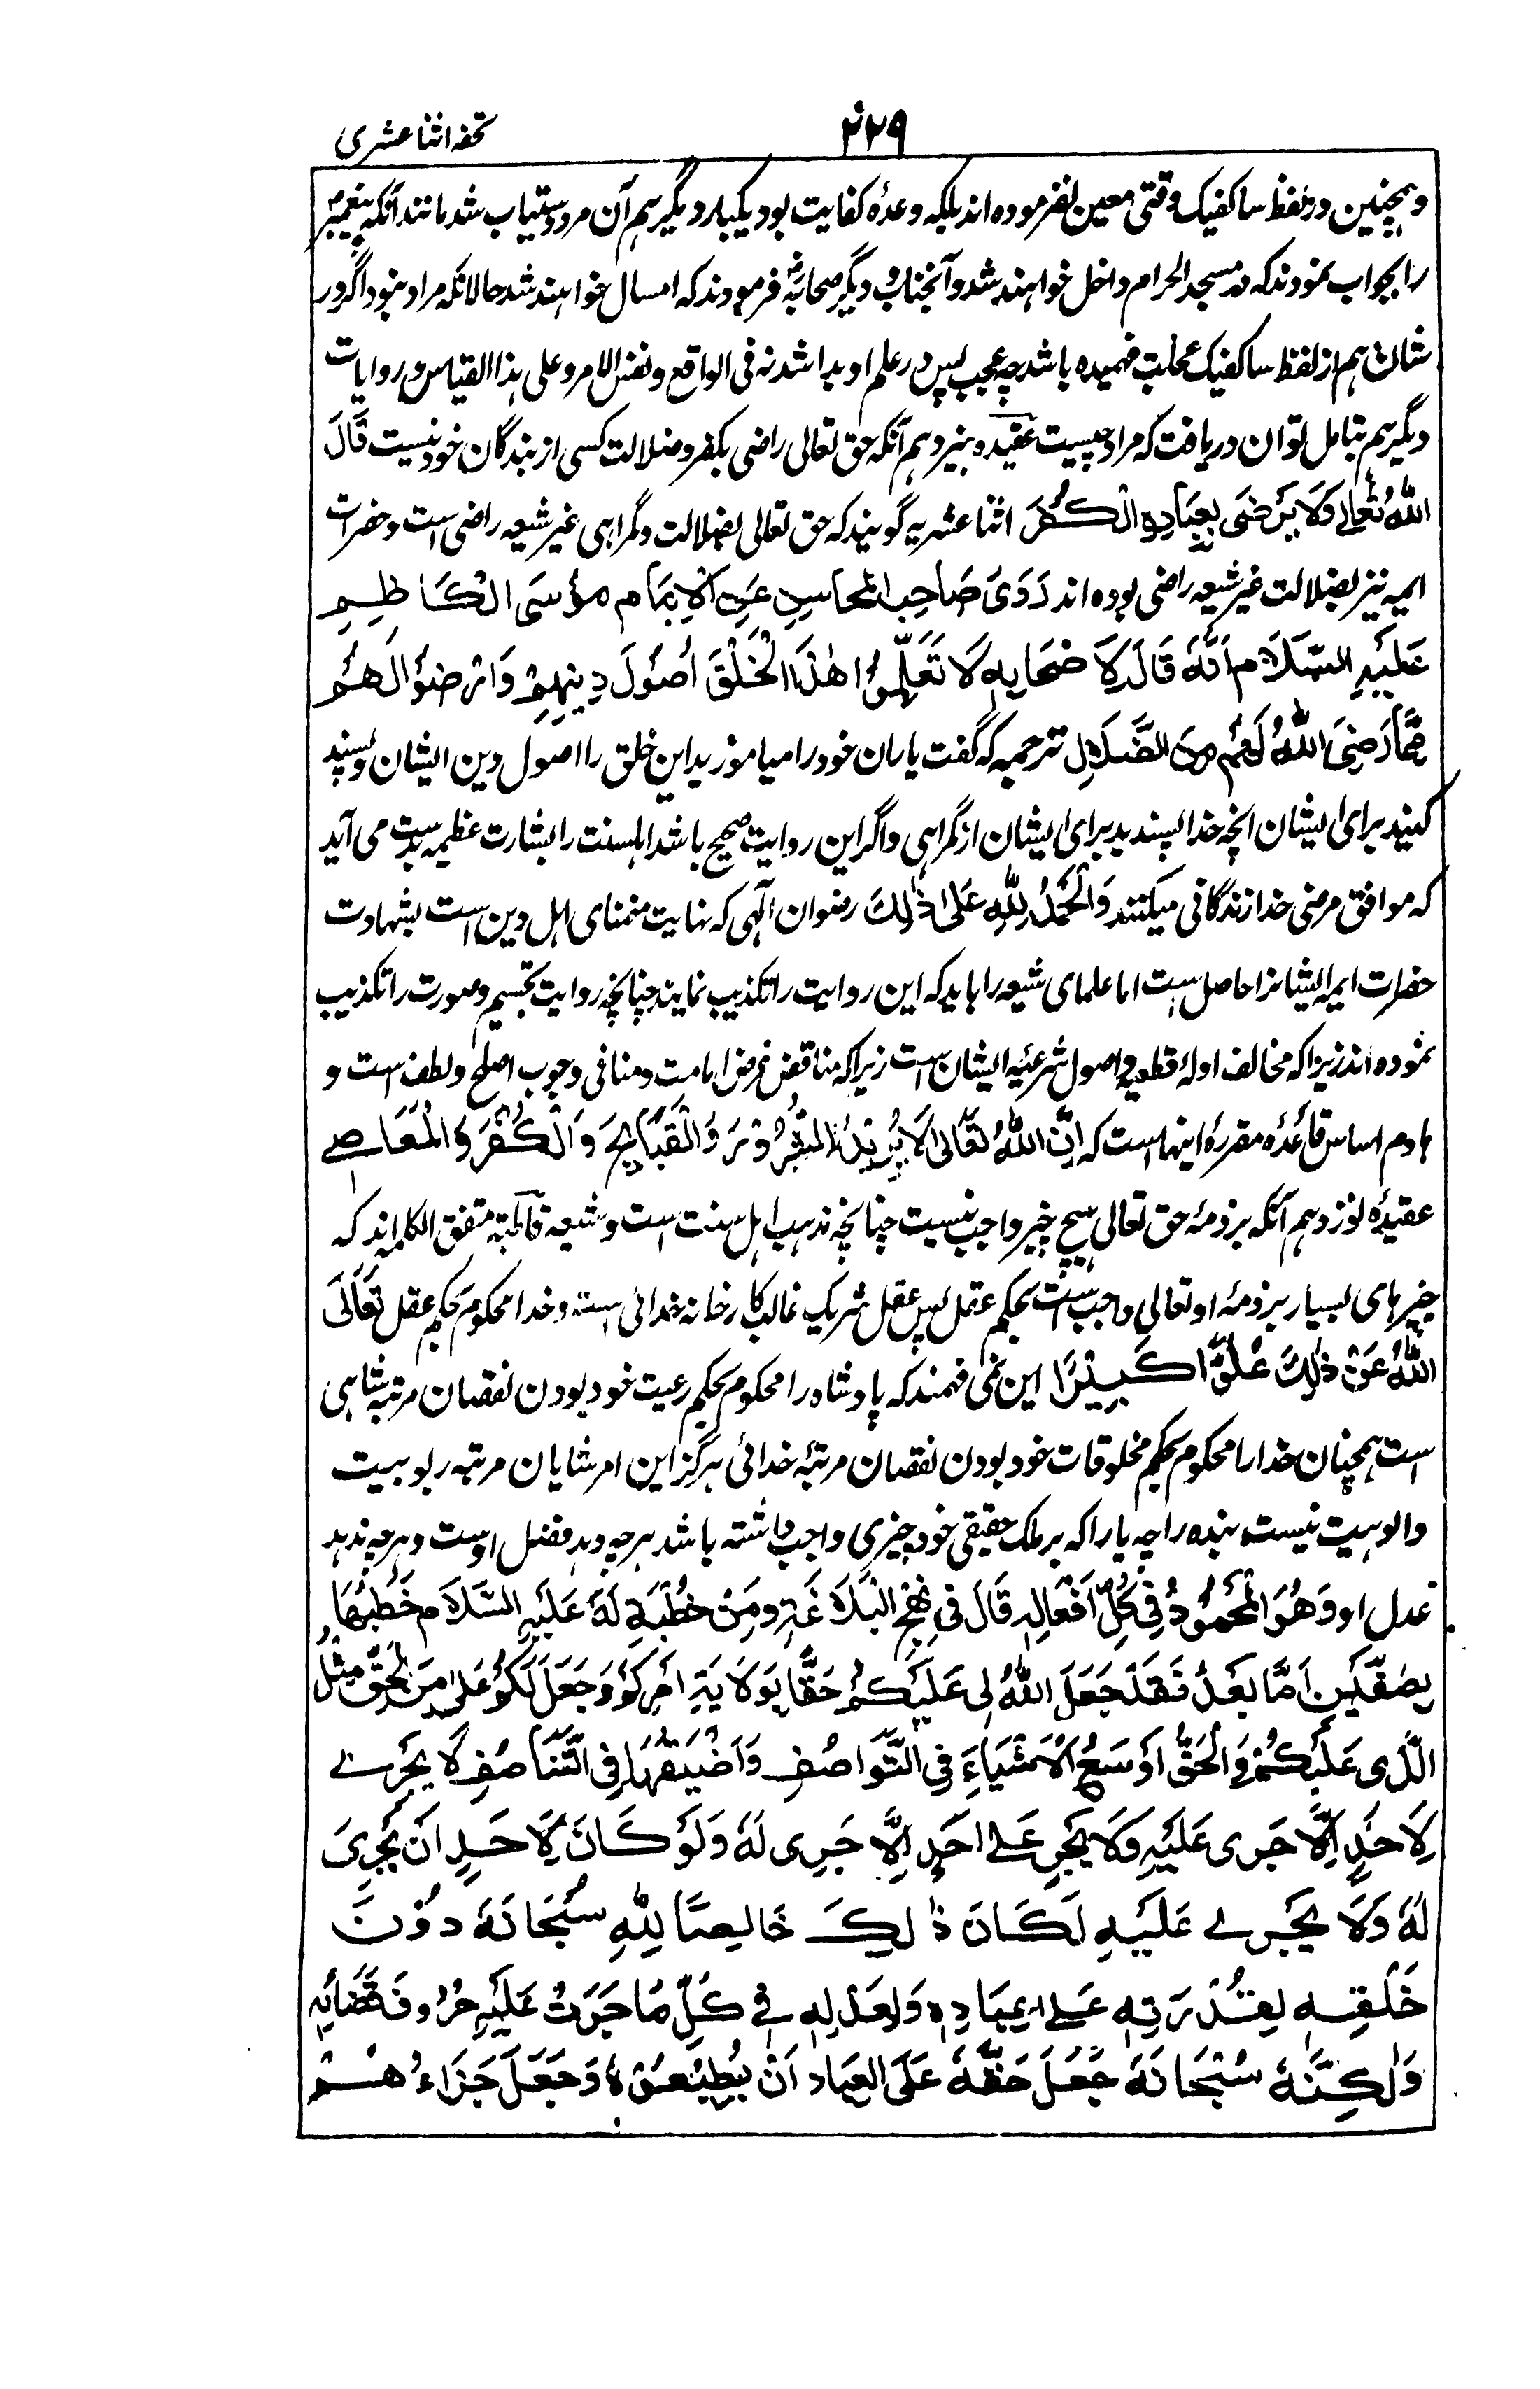 تحفه اثنا عشری
۲۲۹
و همچنین در لفظ ساکفیک وقتی معین نفرموده اند بلکه وعدهٔ کفایت بود یکبار دیگر هم آن مرد دستیاب شد مانند آنکه پیغمبر
را بخواب نمودند که در مسجد الحرام داخل خواهند شد و آنجناب و دیگر صحابه فرمودند که امسال خواهند شد حالانکه مراد نبود اگر در
شان هم از لفظ ساکفیک عجلت فهمیده باشد چه عجب پس در علم او بدا شد نه فی الواقع و نفس الامر و علی هذا القیاس در روایات
دیگر هم بتامل توان دریافت که مراد چیست عقیده هیزدهم آنکه حق تعالی راضی بکفر و ضلالت کسی از بندگان خود نیست قَالَ
اللهُ تَعَالٰی وَلَا یَرْضٰی لِعِبَادِهِ الْکُفْرَ اثنا عشریه گویند که حق تعالی بضلالت و گمراهی غیر شیعه راضی است و حضرات
ایمه نیز بضلالت غیر شیعه راضی بوده اند رَوٰی صَاحِبُ المحاسِنِ عَنِ الْاِمَام مُوْسَی الْکَاظِمِ
عَلَیْهِ السَّلَام اَنَّهٗ قَالَ لِاَصْحَابِهٖ لَا تَعَلِّمُوْا هٰذَا الْخَلْقَ اُصُوْلَ دِیْنِهِمْ وَارْضَوْا لَهُمْ
مَّا رَضِیَ اللهُ لَهُمْ مِنَ الضَّلَالِ ترجمه که گفت یاران خود را میاموزید این خلق را اصول دین ایشان و پسند
کنید برای ایشان انچه خدا پسندید برای ایشان از گمراهی و اگر این روایت صحیح باشد اهلسنت را بشارت عظیمه بدست می آید
که موافق مرضی خدا زندگانی میکنند وَالْحَمْدُ لِلّٰهِ عَلٰی ذٰلِکَ رضوان الٰهی که نهایت متمنای اهل دین است بشهادت
حضرات ایمه ایشانرا حاصل است اما علمای شیعه را باید که این روایت را تکذیب نمایند چنانچه روایت تجسیم و صورت را تکذیب
نموده اند زیرا که مخالف ادلهٔ قطعیه و اصول شرعیهٔ ایشان است زیرا که مناقض غرض امامت و منافی وجوب اصلح و لطف است و
هادم اساس قاعدهٔ مقررهٔ اینها است که اِنَّ اللهَ تَعَالٰی لَا یُرِیْدُ الشُّرُوْرَ وَالْقَبَایِحَ وَالْکُفْرَ وَالْمَعَاصِے
عقیدهٔ نوزدهم آنکه بر ذمهٔ حق تعالی هیچ چیز واجب نیست چنانچه مذهب اهل سنت است و شیعه قاطبةً متفق الکلمه اند که
چیزهای بسیار بر ذمهٔ او تعالی واجب است بحکم عقل پس عقل شریک غالب کارخانه خدائی است و خدا محکوم حکم عقل تَعَالَی
اللهُ عَنْ ذٰلِکَ عُلُوًّا کَبِیْرًا این نمی فهمند که پادشاه را محکوم بحکم رعیت خود بودن نقصان مرتبهٔ شاهی
است همچنان خدا را محکوم بحکم مخلوقات خود بودن نقصان مرتبهٔ خدائی هرگز این امر شایان مرتبه ربوبیت
و الوهیت نیست بنده را چه یارا که بر مالک حقیقی خود چیزی واجب داشته باشد هر چه دهد فضل اوست و هر چه ندهد
عدل او وَهُوَ الْمَحْمُوْدُ فِیْ کُلِّ اَفْعَالِهٖ قَالَ فِیْ نَهْجِ الْبَلَاغَةِ وَمِنْ خُطْبَةٍ لَهٗ عَلَیْهِ السَّلَام خَطَبَهَا
بِصِفِّیْنِ اَمَّا بَعْدُ فَقَدْ جَعَلَ اللهُ لِی عَلَیْکُمْ حَقًّا بِوِلَایَةِ اَمْرِکُمْ وَجَعَلَ لَکُمْ عَلَیَّ مِنَ الْحَقِّ مِثْلَ
الَّذِی عَلَیْکُمْ وَالْحَقُّ اَوْسَعُ الْاَشْیَاءِ فِی التَّوَاصُفِ وَاَضْیَقُهَا فِی التَّنَاصُفِ لَا یَجْرِے
لِاَحَدٍ اِلَّا جَرٰی عَلَیْهِ وَلَا یَجْرِی عَلٰے اَحَدٍ اِلَّا جَرٰی لَهٗ وَلَوْ کَانَ لِاَحَدٍ اَنْ یَّجْرِیَ
لَهٗ وَلَا یَجْرِے عَلَیْهِ لَکَانَ ذٰلِکَ خَالِصًا لِلّٰهِ سُبْحَانَهٗ دُوْنَ
خَلْقِهٖ لِقُدْرَتِهٖ عَلٰے عِبَادِهٖ وَلِعَدْلِهٖ فِے کُلِّ مَا جَرَتْ عَلَیْهِ صُرُوفُ قَضَائِهٖ
وَلٰکِنَّهٗ سُبْحَانَهٗ جَعَلَ حَقَّهٗ عَلَی الْعِبَادِ اَنْ یُطِیْعُوْهُ وَجَعَلَ جَزَاءَهُمْ